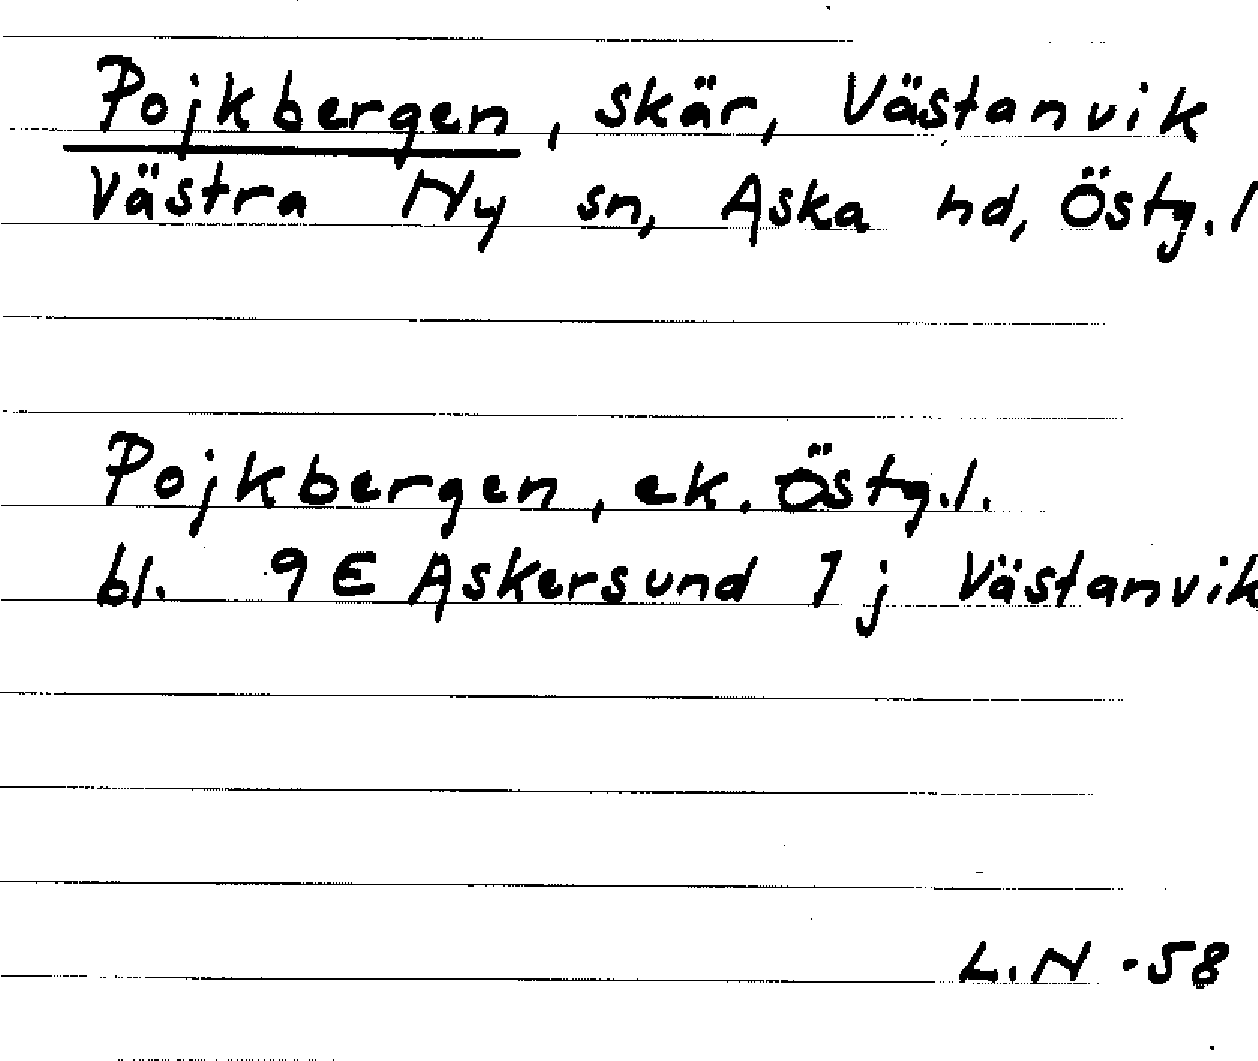 Pojkbergen, skär, Västanvik
Västra Ny sn, Aska hd, Östg.l
Pojkbergen, ek. Östg.l.
bl. 9 E Askersund 1 j Västanvik
L.N -58